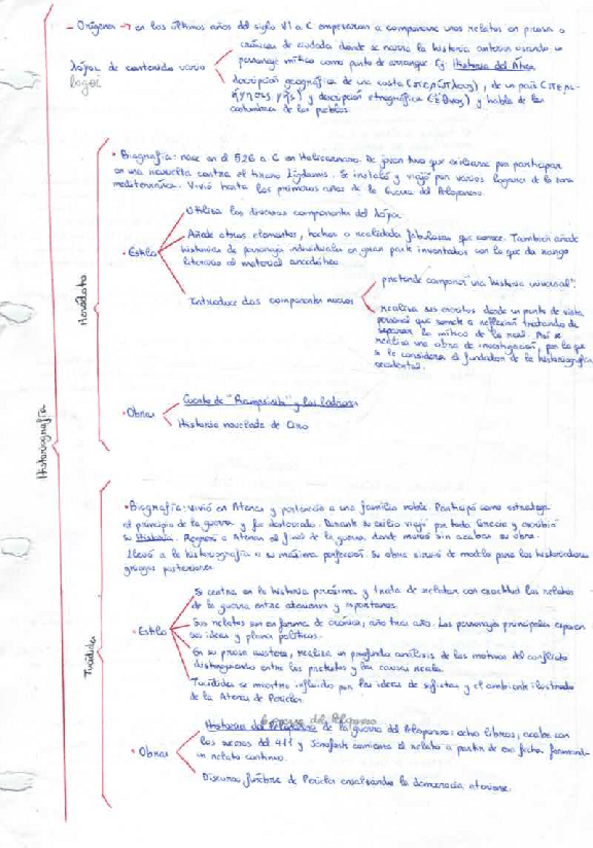 - Orígenes → en los últimos años del siglo VI a C empezaron a componerse unos relatos en prosa o
crónicas de ciudades donde se narra la historia anterior usando un
personaje mítico como punto de arranque Ej: Historia del Ática
lógoi de contenido vario
logoi
descripción geográfica de una costa (περίπλους), de un país (περι-
ήγησις γῆς) y descripción etnográfica (ἔθνος) y habla de las
costumbres de los pueblos.
Historiografía
Heródoto
• Biografía: nace en el 526 a C en Halicarnaso. De joven tuvo que exiliarse por participar
en una revuelta contra el tirano Ligdamis. Se instaló y viajó por varios lugares de la zona
mediterránea. Vivió hasta los primeros años de la Guerra del Peloponeso.
• Estilo
Utiliza los diversos componentes del lógos
Añade otros elementos, hechos o realidades fabulosas que conoce. También añade
historias de personajes individuales en gran parte inventados con lo que da rango
literario al material anecdótico
Introduce dos componentes nuevos
pretende componer una "historia universal".
realiza sus escritos desde un punto de vista
personal que somete a reflexión tratando de
separar lo mítico de lo real. Así se
realiza una obra de investigación, por lo que
se le considera el fundador de la historiografía
occidental.
• Obras
Cuento de "Rampsinito" y los ladrones
Historia novelada de Ciro
Tucídides
• Biografía: vivió en Atenas y pertenecía a una familia noble. Participó como estratega
al principio de la guerra y fue desterrado. Durante su exilio viajó por toda Grecia y escribió
su Historia. Regresó a Atenas al final de la guerra, donde murió sin acabar su obra.
Llevó a la historiografía a su máxima perfección. Su obra sirvió de modelo para los historiadores
griegos posteriores
• Estilo
Se centra en la historia próxima y trata de relatar con exactitud los relatos
de la guerra entre atenienses y espartanos.
Sus relatos son en forma de crónica, año tras año. Los personajes principales exponen
sus ideas y planes políticos.
En su prosa austera, realiza un profundo análisis de los motivos del conflicto
distinguiendo entre los pretextos y las causas reales.
Tucídides se muestra influido por las ideas de sofistas y el ambiente ilustrado
de la Atenas de Pericles.
• Obras
la guerra del Peloponeso
Historia del Peloponeso de la guerra del Peloponeso: ocho libros, acaba con
los sucesos del 411 y Jenofonte comienza el relato a partir de esa fecha formando
un relato continuo.
Discurso fúnebre de Pericles ensalzando la democracia ateniense.